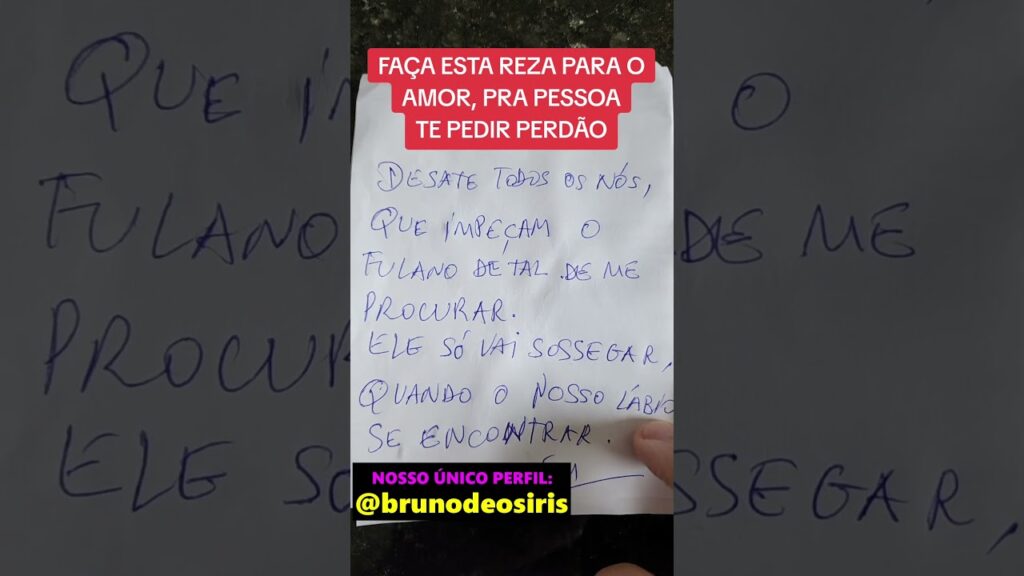 FAÇA ESTA REZA PARA O
AMOR, PRA PESSOA
TE PEDIR PERDÃO
DESATE TODOS OS NÓS,
QUE IMPEÇAM O
FULANO DE TAL DE ME
PROCURAR.
ELE SÓ VAI SOSSEGAR,
QUANDO O NOSSO LÁBIO
SE ENCONTRAR.
NOSSO ÚNICO PERFIL:
@brunodeosiris